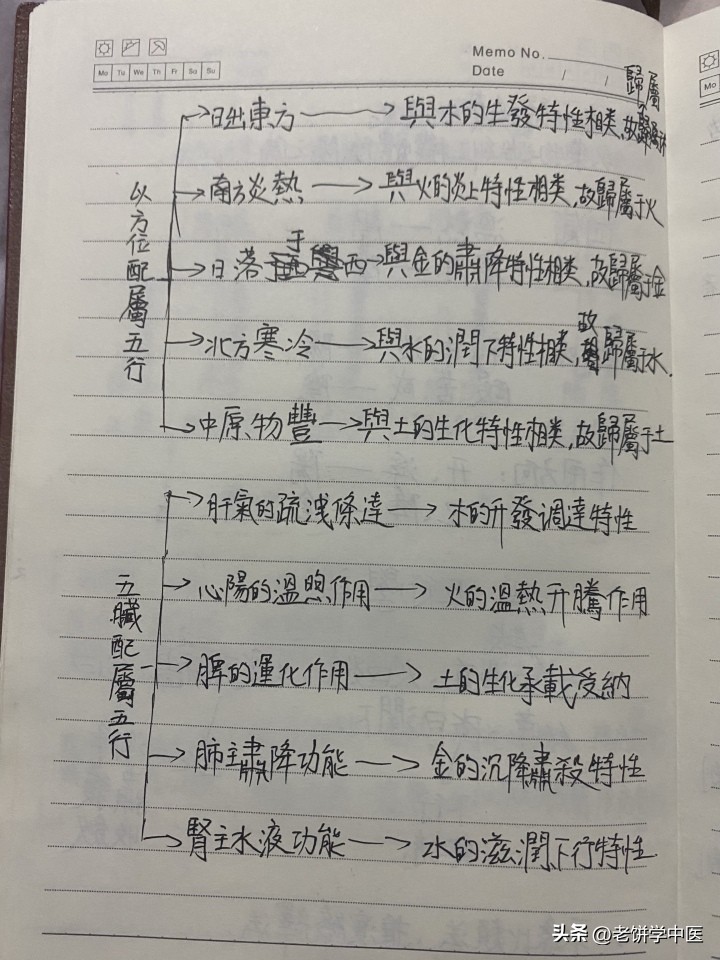 Memo No.
Mo Tu We Th Fr Sa Su
Date / /
歸屬
以方位配屬五行
日出東方 → 與木的生發特性相类,故歸屬木
南方炎熱 → 與火的炎上特性相类,故歸屬于火
于
日落西 → 與金的肅降特性相类,故歸屬于金
故
北方寒冷 → 與水的潤下特性相类,歸屬于水.
中原物豐 → 與土的生化特性相类,故歸屬于土
五臟配屬五行
肝氣的疏洩條達 → 木的升發调達特性
心陽的溫煦作用 → 火的溫熱升騰作用
脾的運化作用 → 土的生化承載受納
肺主肅降功能 → 金的沉降肅殺特性
腎主水液功能 → 水的滋潤下行特性
Mo
头条 @老饼学中医